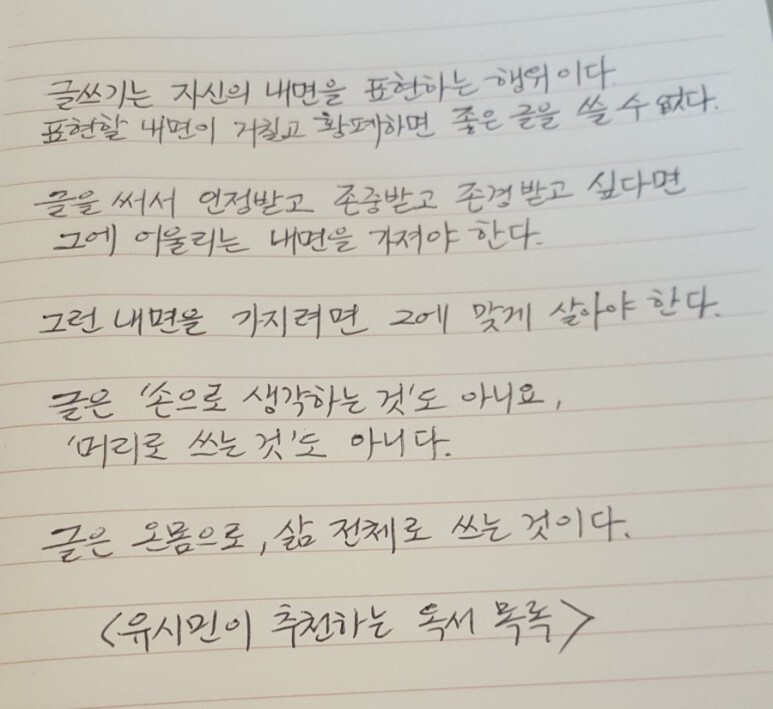 글쓰기는 자신의 내면을 표현하는 행위이다.
표현할 내면이 거칠고 황폐하면 좋은 글을 쓸 수 없다.
글을 써서 인정받고 존중받고 존경받고 싶다면
그에 어울리는 내면을 가져야 한다.
그런 내면을 가지려면 그에 맞게 살아야 한다.
글은 '손으로 생각하는 것'도 아니요,
'머리로 쓰는 것'도 아니다.
글은 온몸으로, 삶 전체로 쓰는 것이다.
<유시민이 추천하는 독서 목록>